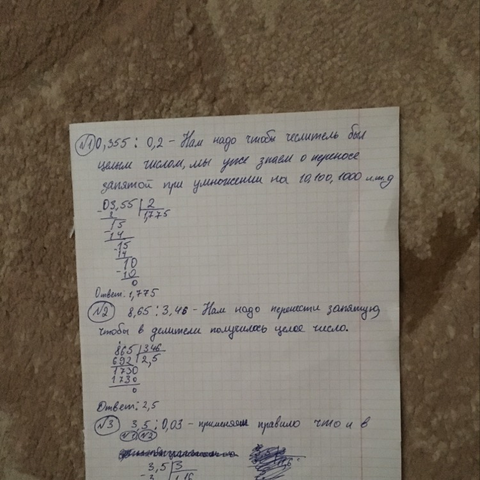 №1 0,355 : 0,2 - Нам надо чтобы числитель был
целым числом, мы уже знаем о переносе
запятой при умножении на 10,100,1000 и т.д
03,55 | 2
- 2 | 1,775
15
- 14
15
- 14
10
- 10
0
Ответ: 1,775
№2 8,65 : 3,46 - Нам надо перенести запятую
чтобы в делители получилось целое число.
865 | 346
692 | 2,5
1730
1730
0
Ответ: 2,5
№3 3,5 : 0,03 - применяем правило что и в
№1 №2
3,5 | 3
- 3 | 1,16